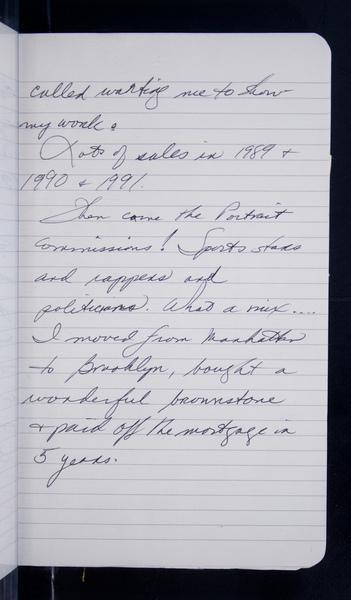 called wanting me to show
my work.
Lots of sales in 1989 +
1990 + 1991.
Then came the Portrait
commissions! Sports stars
and rappers and
politicians. What a mix....
I moved from Manhattan
to Brooklyn, bought a
wonderful brownstone
+ paid off the mortgage in
5 years.